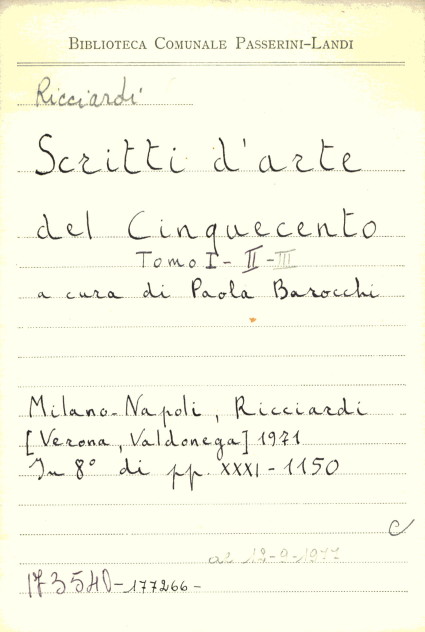 BIBLIOTECA COMUNALE PASSERINI-LANDI
Ricciardi
Scritti d'arte
del Cinquecento
Tomo I - II - III
a cura di Paola Barocchi
Milano-Napoli, Ricciardi
[Verona, Valdonega] 1971
In 8° di pp. XXXI-1150
C
al 12-9-1977
173540-177266-